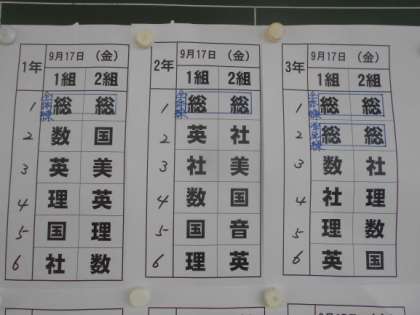 1年 9月17日 (金)
1組 2組
1 総 総
2 数 国
3 英 美
4 理 英
5 国 理
6 社 数
2年 9月17日 (金)
1組 2組
1 総 総
2 英 社
3 社 美
4 数 国
5 国 音
6 理 英
3年 9月17日 (金)
1組 2組
1 総 総
2 総 総
3 数 社
4 社 理
5 理 数
6 英 国